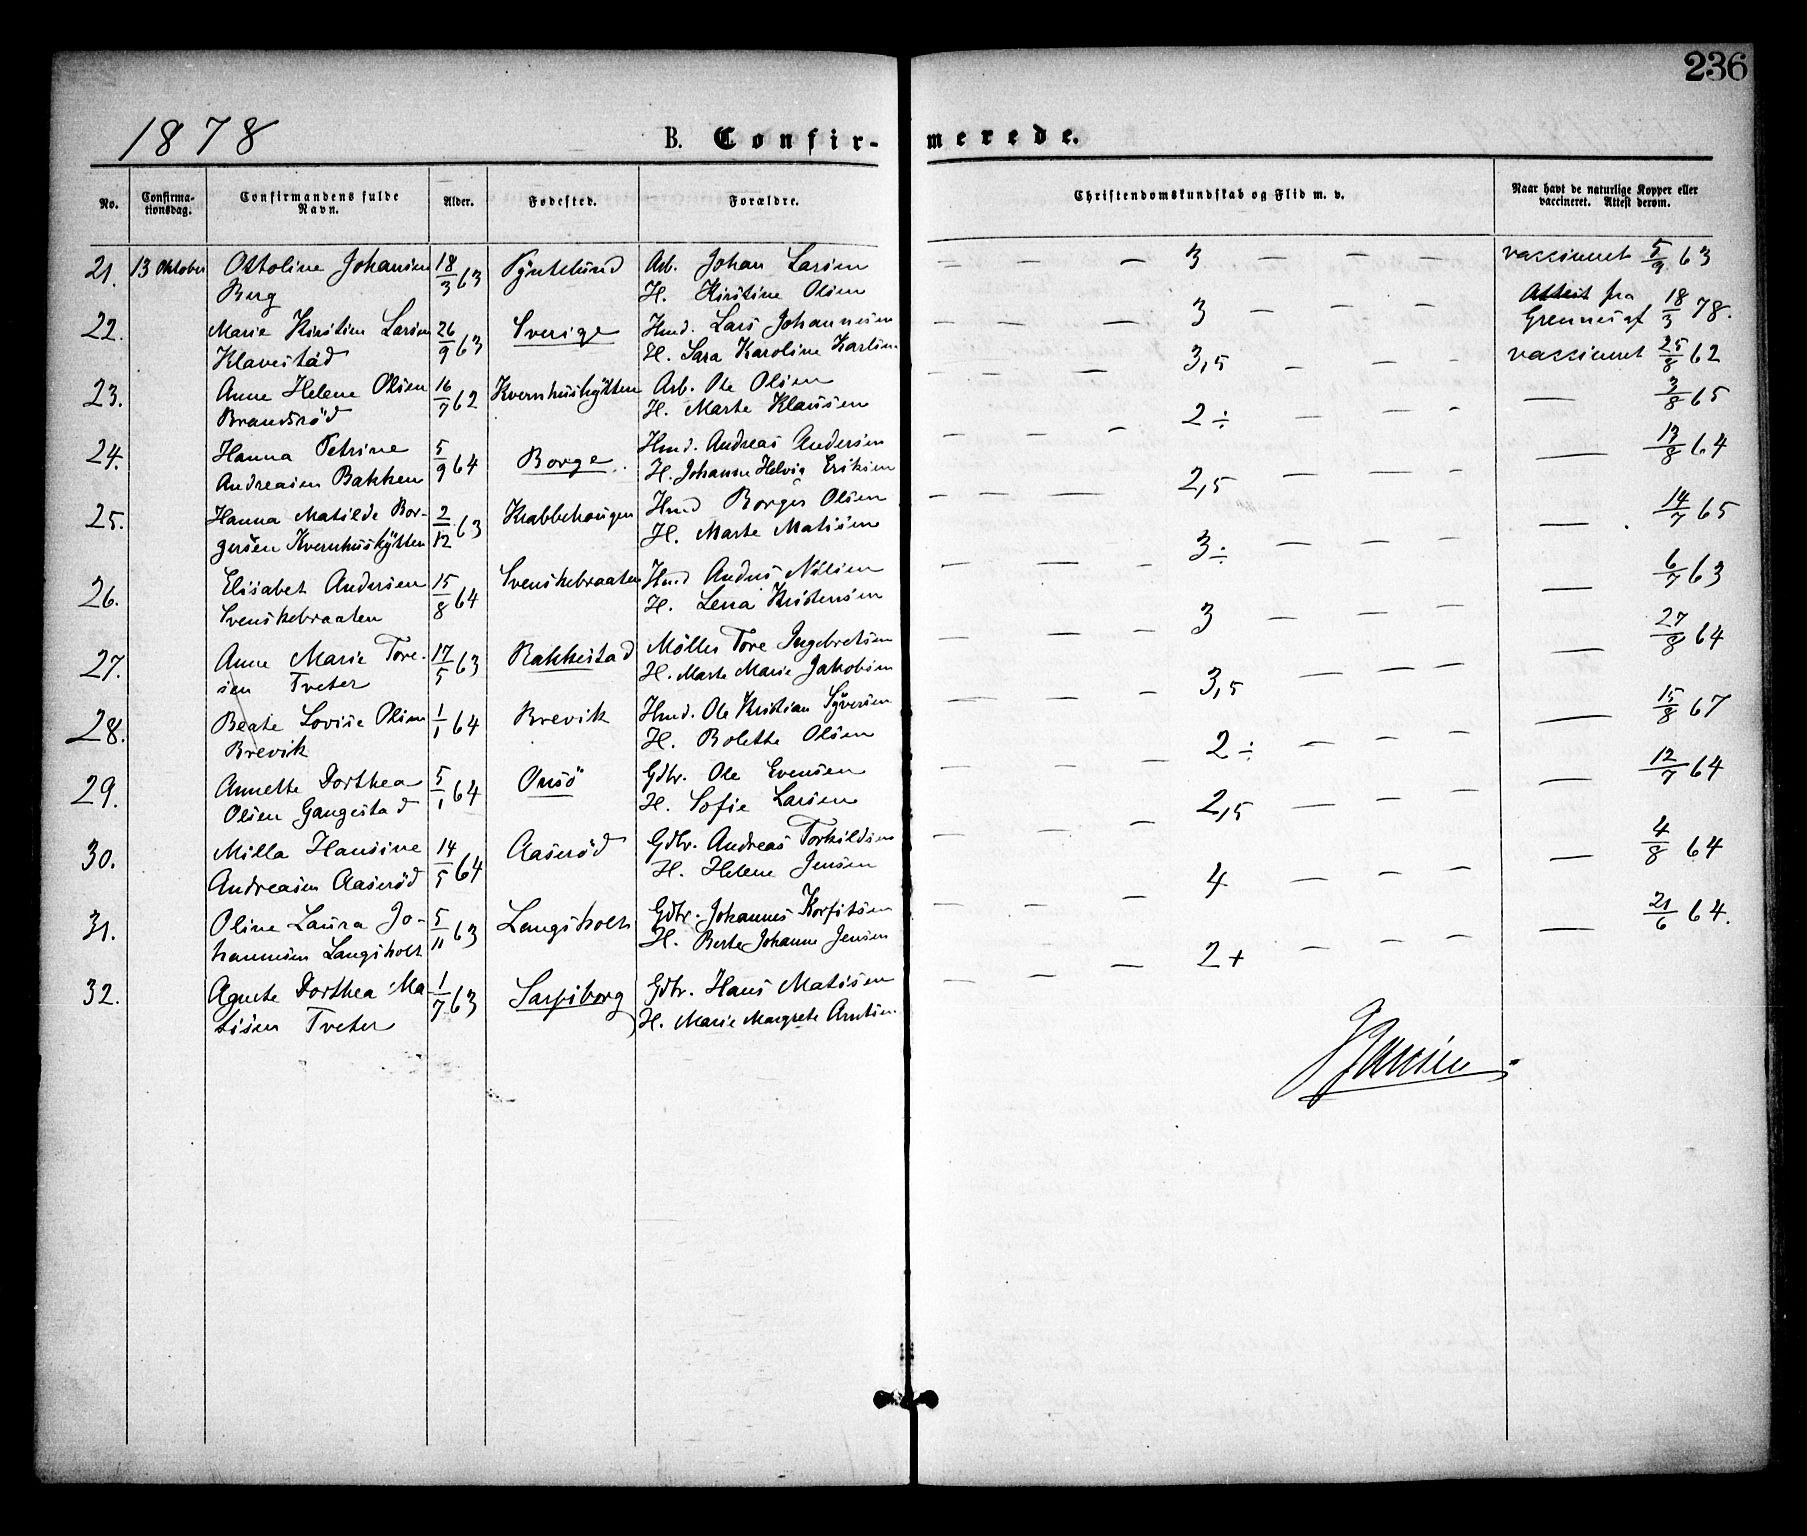 236
1878
B. Confirmerede.
No. Confirmationsdag. Confirmandens fulde Navn. Alder. Fødested. Forældre. Christendomskundskab og Flid m. v. Naar havt de naturlige Kopper eller vaccineret. Attest derom.
21. 13 Oktober Ottoline Johansen 18/3 63 Arb. Johan Larsen — — — 3 — — — vaccineret 5/9 63
Berg H. Kirstine Olsen
22. Marie Kirstine Larsen 26/9 63 Sverige Hmd. Lars Johannesen — — — 3 — — — Attest fra 18/3 78.
Klavestad H. Sara Karoline Karlsen
23. Anne Helene Olsen 16/7 62 Kvernhuskytten Arb. Ole Olsen — — — 3,5 — — — vaccineret 25/8 62
Brandsrød H. Marte Klausen
24. Hanna Petrine 5/9 64 Borge. Hmd. Andreas Andersen — — — 2÷ — — — — 3/8 65
Andreasen Bakken H. Johanne Helvig Eriksen
25. Hanna Matilde Bor- 2/12 63 Krabbehaugen Hmd Borger Olsen — — — 2,5 — — — — 13/8 64
gersen Kvernhuskytten H. Marte Matisen
26. Elisabet Andersen 15/8 64 Svenskebraaten Hmd Anders Nilsen — — — 3÷ — — — — 14/7 65
Svenskebraaten H. Lena Kristensen
27. Anne Marie Tore- 17/5 63 Rakkestad Møller Tore Ingebretsen — — — 3 — — — — 6/7 63
sen Tveter H. Marte Marie Jakobsen
28. Beate Lovise Olsen 1/1 64 Brevik Hmd. Ole Kristian Syversen — — — 3,5 — — — — 27/8 64
Brevik H. Bolette Olsen
29. Annette Dorthea 5/1 64 Onsö Gdbr. Ole Evensen — — — 2÷ — — — — 15/8 67
Olsen Gangestad H. Sofie Larsen
30. Milla Hansine 14/5 64 Aaserød Gdbr. Andreas Torkildsen — — — 2,5 — — — — 12/7 64
Andreasen Aaserød H. Helene Jensen
31. Oline Laura Jo- 5/11 63 Langsholt Gdbr. Johannes Korfitsen — — — 4 — — — — 4/8 64
hannesen Langsholt H. Berte Johanne Jensen
32. Agnete Dorthea Ma- 1/7 63 Sarpsborg Gdbr. Hans Matisen — — — 2+ — — — — 21/6 64.
tisen Tveter H. Marie Margrete Arntsen